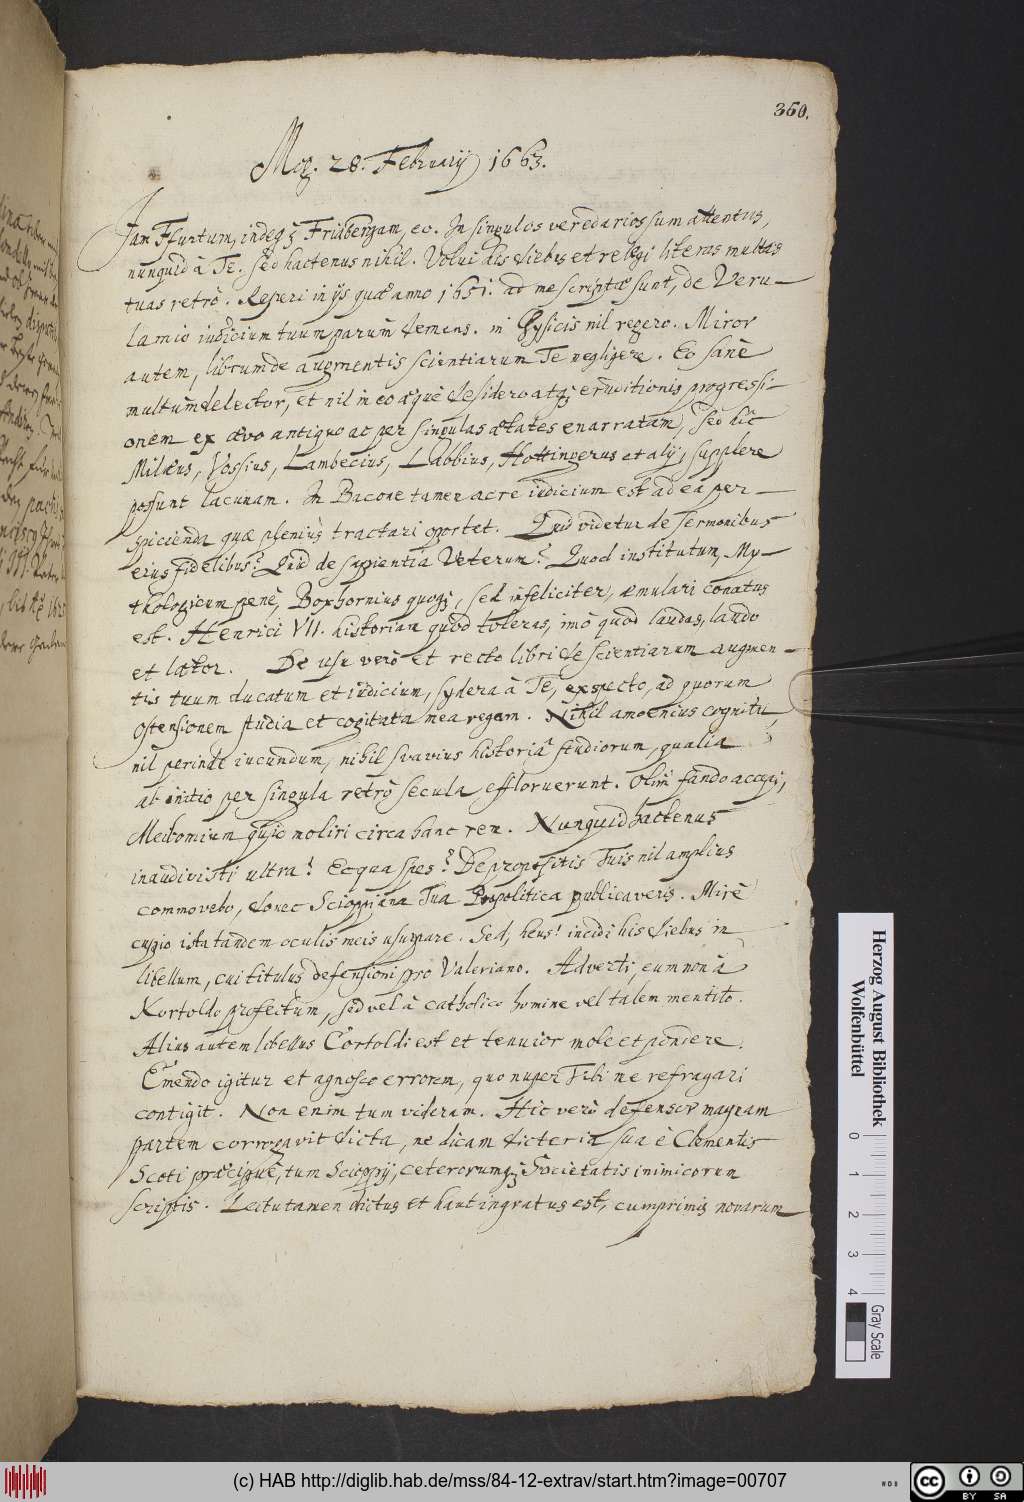 360.
Mog. 28. February 1663.
Jam Ffurtum, indeq; Fridbergam, eo. In singulos veredarios sum attentus,
nunquid à Te. sed hactenus nihil. Volui his diebus et relegi literas multas
tuas retrò. Reperi in ijs quæ anno 1651. ad me scriptæ sunt, de Veru-
lamio iudicium tuum parum clemens. in Physicis nil regero. Miror
autem, librum de augmentis scientiarum Te negligere. Eo sanè
multùm delector, et nil in eo æquè desidero atq; eruditionis progressi-
onem ex ævo antiquo ac per singulas ætates enarratam, sed hîc
Milæus, Vossius, Lambecius, Labbius, Hottingerus et alij, supplere
possunt lacunam. In Bacone tamen acre iudicium est ad ea per-
spicienda quæ pleniùs tractari oportet. Quid videtur de sermonibus
eius fidelibus? Quid de sapientia Veterum? Quod institutum, My-
thologicum penè, Boxhornius quoq;, sed infeliciter, æmulari conatus
est. Henrici VII. historiam quòd toleras, imò quòd laudas, laudo
et lætor. De usu verò et recto libri de scientiarum augmen-
tis tuum ducatum et iudicium, sydera à Te, exspecto, ad quorum
ostensionem studia et cogitata mea regam. Nihil amoenius cognitu,
nil perinde iucundum, nihil suavius historiâ studiorum, qualia
ab initio per singula retrò secula effloruerunt. Olim fando accepi,
Meibomium quid moliri circa hanc rem. Nunquid hactenus
inaudivisti ultra? Ecqua spes? De propositis Tuis nil amplius
commovebo, donec Scioppiana Tua politica publicaveris. Mirè
cupio ista tandem oculis meis usurpare. Sed, heus! incidi his diebus in
libellum, cui titulus defensioni pro Valeriano. Adverti, eum non à
Kortoldo profectum, sed vel à catholico homine vel talem mentito.
Alius autem libellus Cortoldi est et tenuior mole et pondere.
Emendo igitur et agnosco errorem, quo nuper Tibi me refragari
contigit. Non enim tum videram. Hic verò defensor magnam
partem corrogavit dicta, ne dicam dicteria sua è Clementis
Scoti præcipuè, tum Scioppij, ceterorumq; Societatis inimicorum
scriptis. Lectu tamen dictus et haut ingratus est, cumprimis novarum
Herzog August Bibliothek
Wolfenbüttel
0 1 2 3 4
Gray Scale
(c) HAB http://diglib.hab.de/mss/84-12-extrav/start.htm?image=00707
cc BY SA